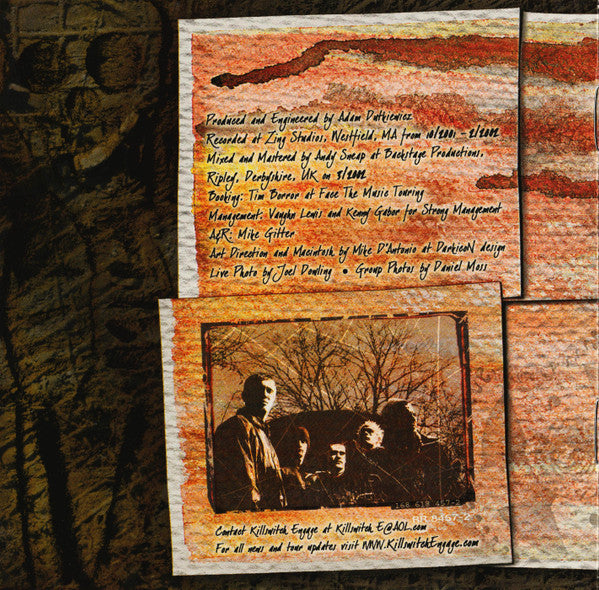 Produced and Engineered by Adam Dutkiewicz
Recorded at Zing Studios, Westfield, MA from 10/2001 - 2/2002
Mixed and Mastered by Andy Sneap at Backstage Productions,
Ripley, Derbyshire, UK on 3/2002
Booking: Tim Borror at Face The Music Touring
Management: Vaughn Lewis and Kenny Gabor for Strong Management
A&R: Mike Gitter
Art Direction and Macintosh by Mike D'Antonio at DarkicoN design
Live Photo by Joel Dowling • Group Photos by Daniel Moss
368 619 457-2
8457-2
Contact Killswitch Engage at Killswitch E@AOL.com
For all news and tour updates visit WWW.KillswitchEngage.com